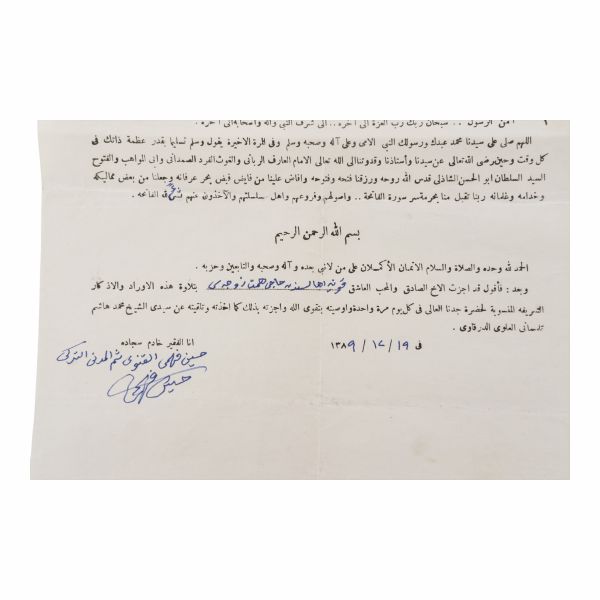 امن الرسول . . سبحان ربك رب العزة الى آخره . . الى شرف النبي وآله واصحابه الى آخره .
اللهم صلى على سيدنا محمد عبدك ورسولك النبى الامى وعلى آله وصحبه وسلم وفى المرة الاخيرة يقول وسلم تسليما بقدر عظمة ذاتك فى
كل وقت وحين رضى الله تعالى عن سيدنا وأستاذنا وقدوتنا الى الله تعالى الامام العارف الربانى والغوث الفرد الصمدانى وانى المواهب والفتوح
السيد السلطان ابو الحسن الشاذلى قدس الله روحه ورزقنا فتحه وفتوحه وافاض علينا من فايض فيض بحر عرفانه وجعلنا من بعض مماليكه
وخدامه وغلمانه ربنا تقبل منا بحرمة سر سورة الفاتحة . . واصولهم وفروعهم واهل سلسلتهم والآخذون عنهم لله الفاتحه .
بسم الله الرحمن الرحيم
الحمد لله وحده والصلاة والسلام الاتمان الأكملان على من لانبى بعده وآله وصحبه والتابعين وحزبه .
وبعد : فأقول قد اجزت الاخ الصادق والمحب العاشق قونيه حاجى همت بتلاوة هذه الاوراد والاذكار
الشريفه المنسوبة لحضرة جدنا العالى فى كل يوم مرة واحدة واوصيته بتقوى الله واجزته بذلك كما اخذته وتلقيته عن سيدى الشيخ محمد هاشم
تلمسانى العلوى الدرقاوى .
فى ١٩ / ١٢ / ١٣٨٩
انا الفقير خادم سجاده
حسين فهمى القنوى ثم المدنى التركى